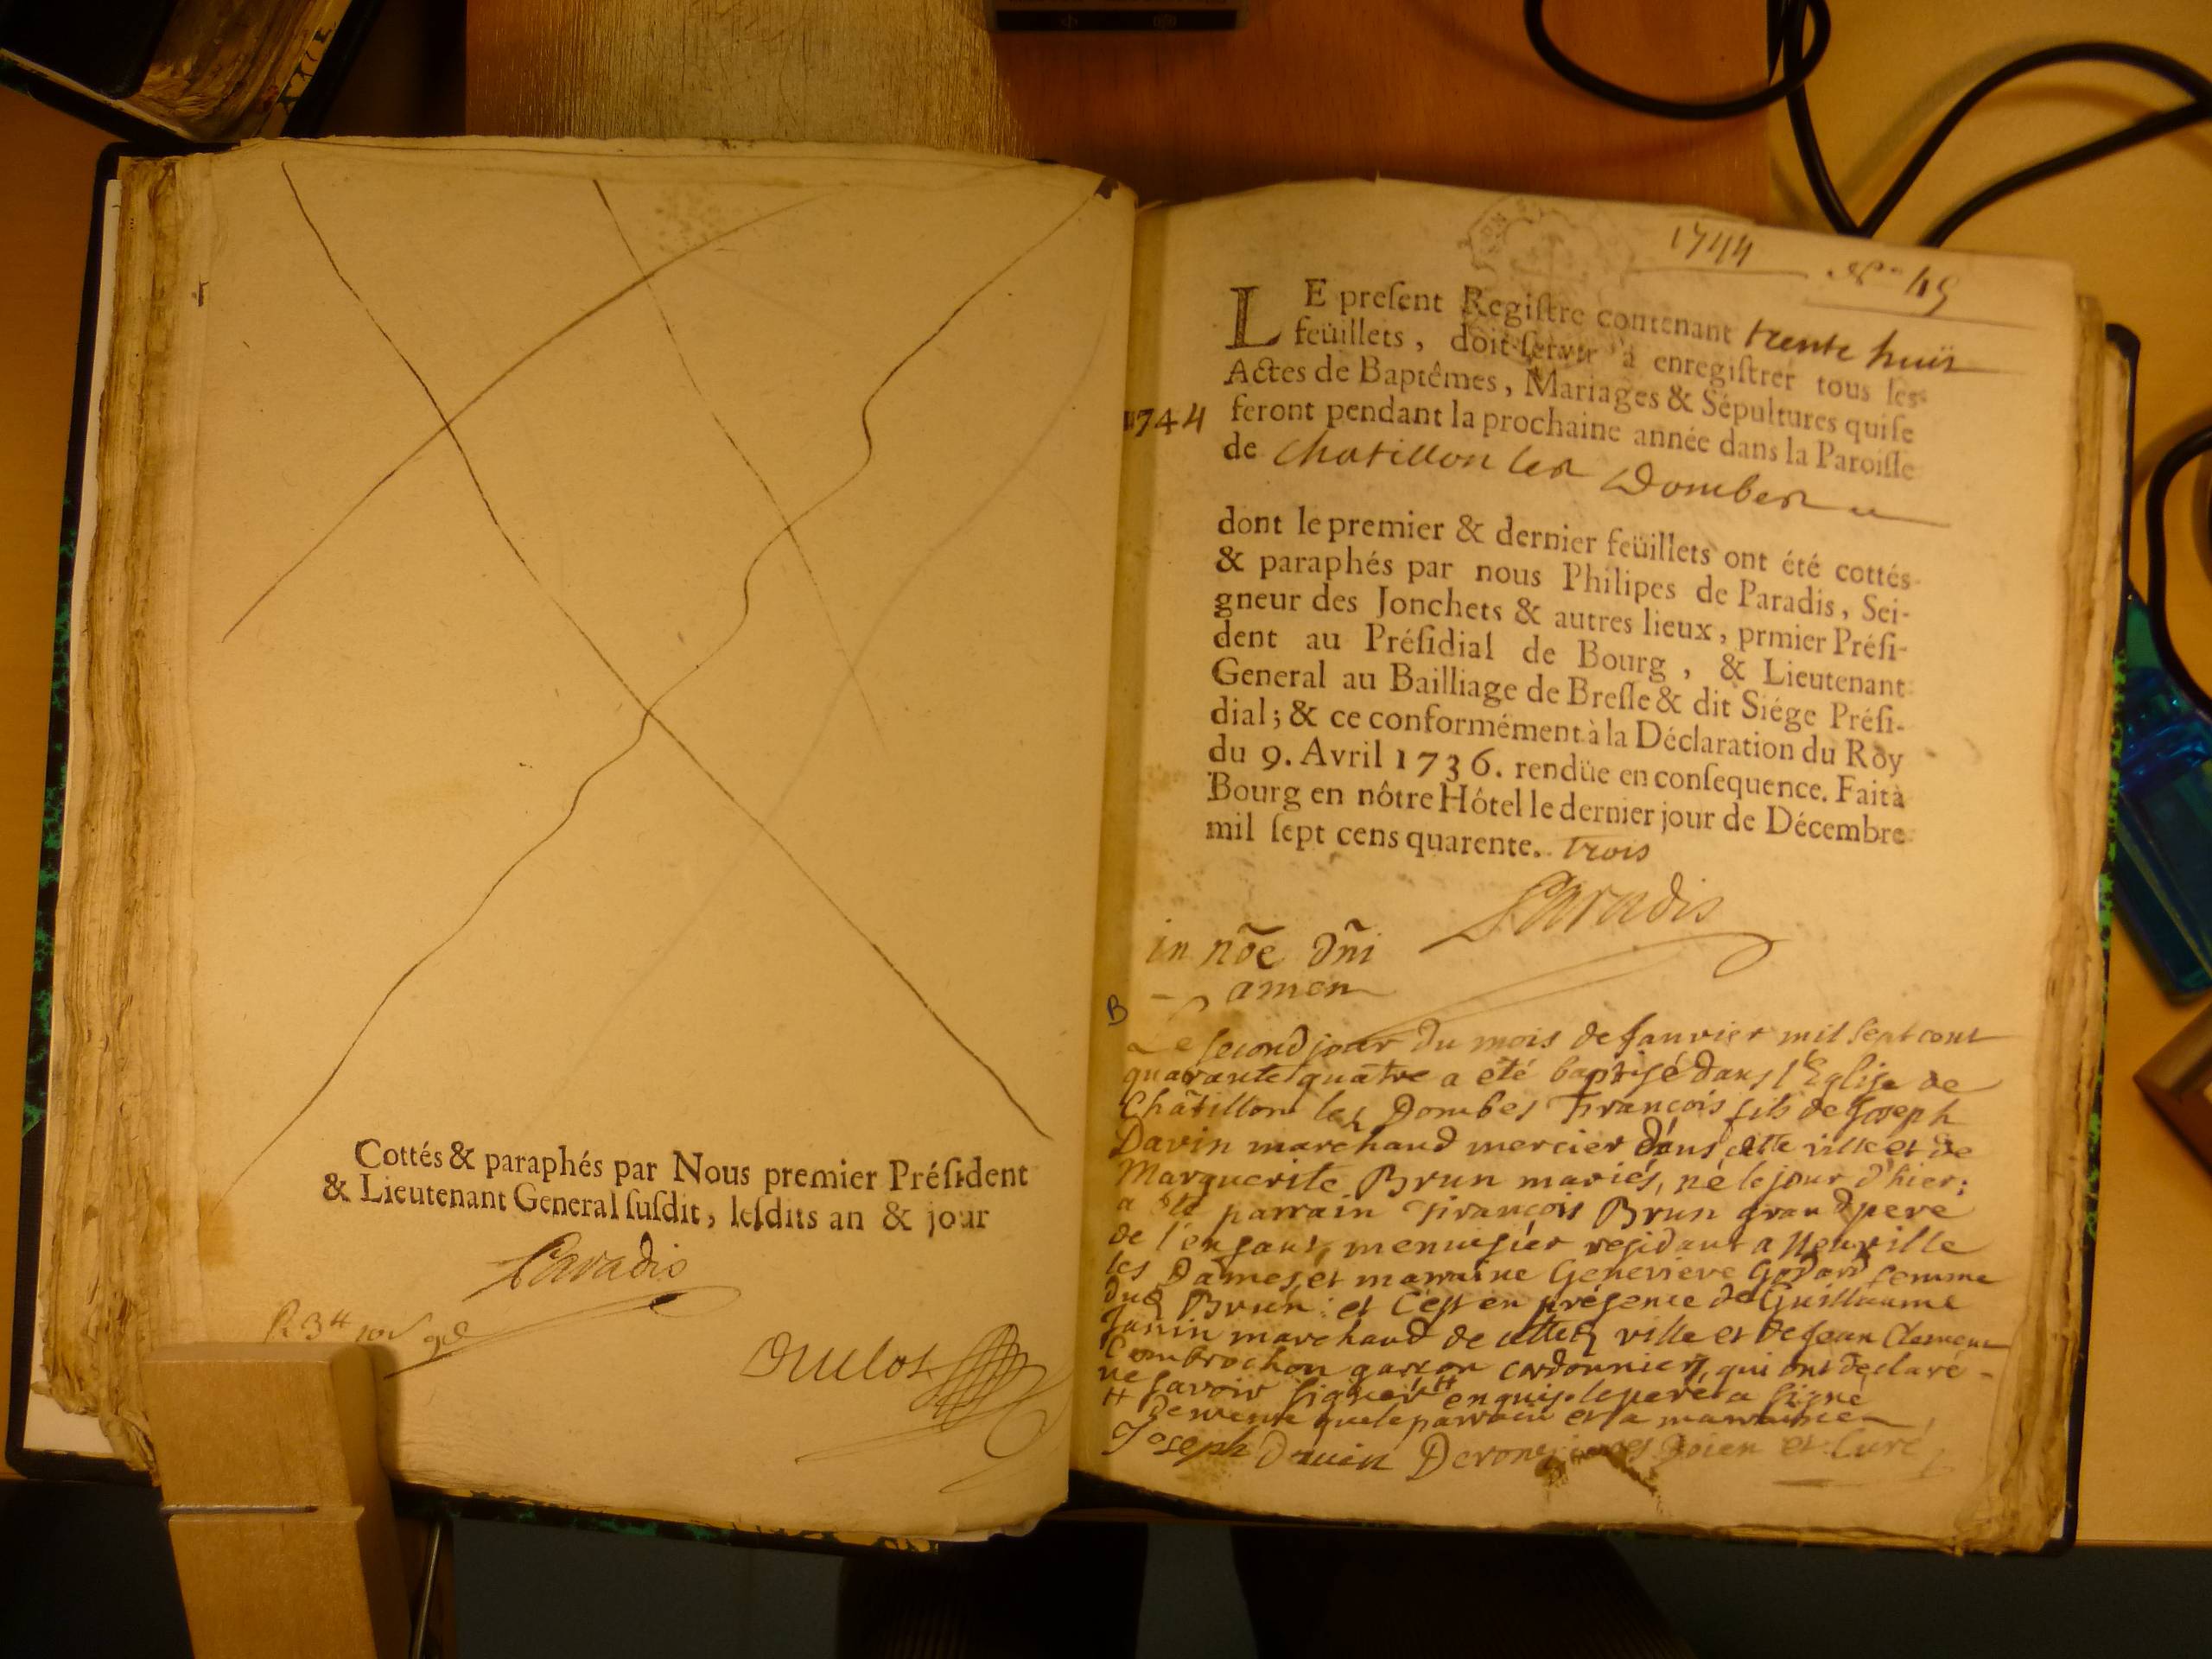 Cottés & paraphés par Nous premier Préſident
& Lieutenant General ſuſdit, leſdits an & jour
Paradis
Duclos
1744
LE preſent Regiſtre contenant trente huit
feüillets, doit ſervir à enregiſtrer tous les
Actes de Baptêmes, Mariages & Sépultures qui ſe
1744 feront pendant la prochaine année dans la Paroiſſe
de Chatillon les Dombes
dont le premier & dernier feüillets ont été cottés
& paraphés par nous Philipes de Paradis, Sei-
gneur des Jonchets & autres lieux, prmier Préſi-
dent au Préſidial de Bourg, & Lieutenant
General au Bailliage de Breſſe & dit Siége Préſi-
dial; & ce conformément à la Déclaration du Roy
du 9. Avril 1736. rendüe en conſequence. Fait à
Bourg en nôtre Hôtel le dernier jour de Décembre
mil ſept cens quarente. trois
Paradis
in nõe dñi
amen
B
Le second jour du mois de Janvier mil sept cent
quarante quatre a été baptisé dans l'Eglise de
Châtillon les Dombes François fils de Joseph
Davin marchand mercier dans cette ville et de
Marguerite Brun mariés, né le jour d'hier;
a été parrain François Brun grand pere
de l'enfant, menuisier residant a Neuville
les Dames, et marraine Genevieve Godard femme
dud Brun: et c'est en présence de Guillaume
Janin marchand de cette ville et de Jean Clement
Combrochon garçon cordonnier, qui ont declaré
ne savoir signer enquis. le pere a signé
de meme que le parrain et la marraine
Joseph Davin Des Doien et Curé